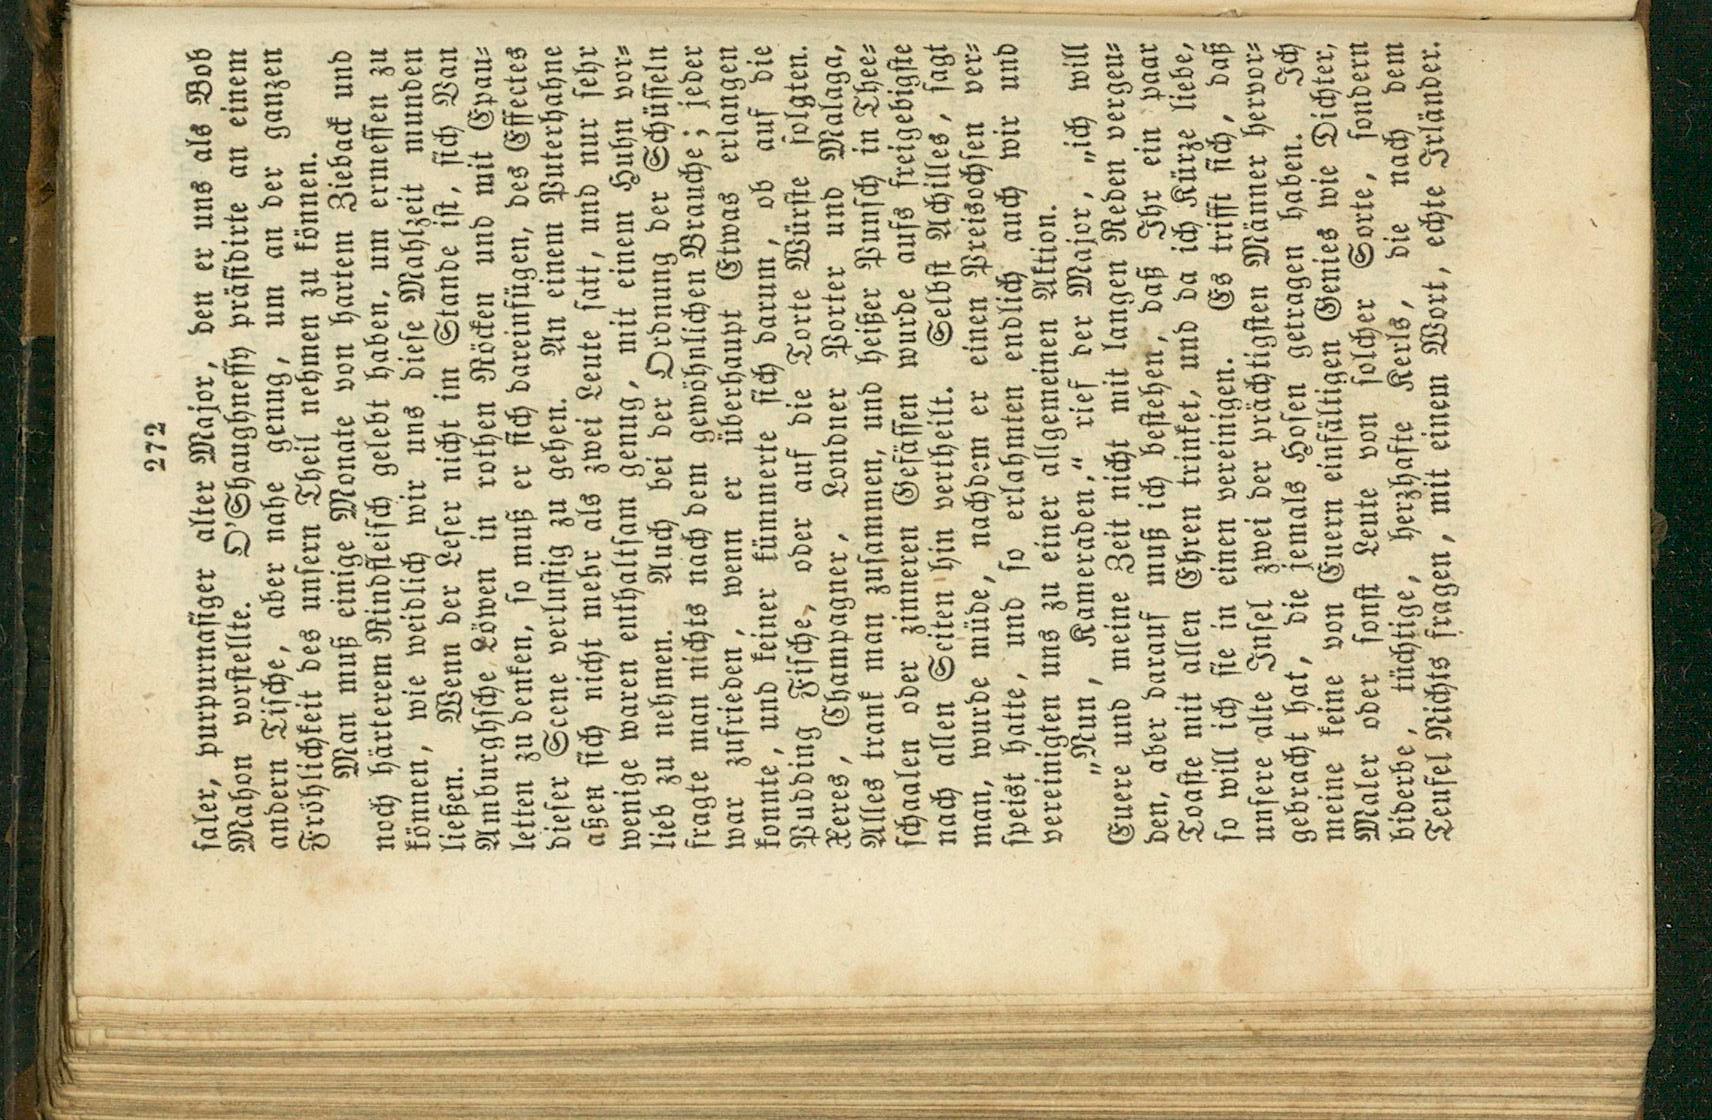 272
ſaler, purpurnaſiger alter Major, den er uns als Bob
Mahon vorſtellte. O'Shaughneſſy präſidirte an einem
andern Tiſche, aber nahe genug, um an der ganzen
Fröhlichkeit des unſern Theil nehmen zu können.
Man muß einige Monate von hartem Zieback und
noch härterem Rindfleiſch gelebt haben, um ermeſſen zu
können, wie weidlich wir uns dieſe Mahlzeit munden
ließen. Wenn der Leſer nicht im Stande iſt, ſich Van
Amburghſche Löwen in rothen Röcken und mit Epau⸗
letten zu denken, ſo muß er ſich dareinfügen, des Effectes
dieſer Scene verluſtig zu gehen. An einem Puterhahne
aßen ſich nicht mehr als zwei Leute ſatt, und nur ſehr
wenige waren enthaltſam genug, mit einem Huhn vor⸗
lieb zu nehmen. Auch bei der Ordnung der Schüſſeln
fragte man nichts nach dem gewöhnlichen Brauche; jeder
war zufrieden, wenn er überhaupt Etwas erlangen
konnte, und keiner kümmerte ſich darum, ob auf die
Pudding Fiſche, oder auf die Torte Würſte folgten.
Xeres, Champagner, Londner Porter und Malaga,
Alles trank man zuſammen, und heißer Punſch in Thee⸗
ſchaalen oder zinneren Gefäſſen wurde aufs freigebigſte
nach allen Seiten hin vertheilt. Selbſt Achilles, ſagt
man, wurde müde, nachdem er einen Preisochſen ver⸗
ſpeist hatte, und ſo erlahmten endlich auch wir und
vereinigten uns zu einer allgemeinen Aktion.
„Nun, Kameraden,“ rief der Major, „ich will
Euere und meine Zeit nicht mit langen Reden vergeu⸗
den, aber darauf muß ich beſtehen, daß Ihr ein paar
Toaſte mit allen Ehren trinket, und da ich Kürze liebe,
ſo will ich ſie in einen vereinigen. Es trifft ſich, daß
unſere alte Inſel zwei der prächtigſten Männer hervor⸗
gebracht hat, die jemals Hoſen getragen haben. Ich
meine keine von Euern einfältigen Genies wie Dichter,
Maler oder ſonſt Leute von ſolcher Sorte, ſondern
biderbe, tüchtige, herzhafte Kerls, die nach dem
Teufel Nichts fragen, mit einem Wort, echte Irländer.